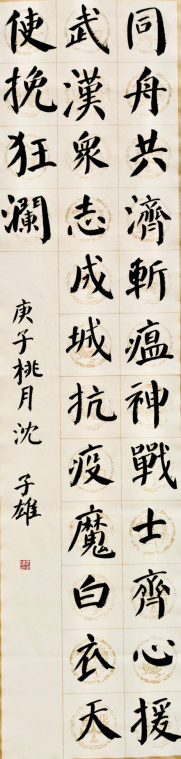 同舟共濟斬瘟神戰士齊心援
武漢衆志成城抗疫魔白衣天
使挽狂瀾
庚子桃月沈子雄